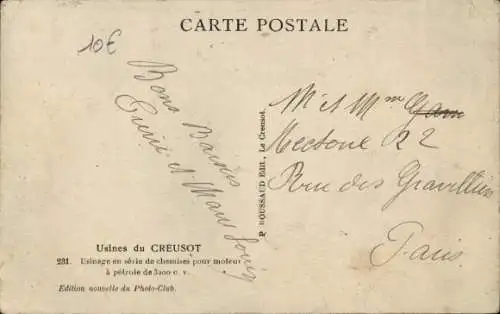 CARTE POSTALE
10€
Bons Baisers
et
M et Mme
22
Rue des Gravilliers
Paris
P ROUSSAUD Edit., Le Creusot.
Usines du CREUSOT
231. Usinage en série de chemises pour moteur
à pétrole de 3200 c. v.
Edition nouvelle du Photo-Club.